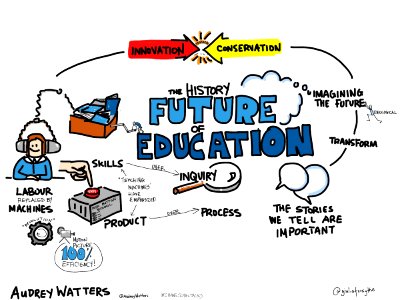 INNOVATION
CONSERVATION
THE HISTORY
FUTURE
OF
EDUCATION
IMAGINING
THE FUTURE
TRANSFORM
SKILLS
OVER
INQUIRY
TEACHING
MACHINES
HAVE
EMPHASIZED
LABOUR
REPLACED BY
MACHINES
PRODUCT
OVER
PROCESS
THE STORIES
WE TELL ARE
IMPORTANT
MOTION
PICTURE
100%
EFFICIENCY!
AUDREY WATTERS
@audreywatters
@giuliaforsythe